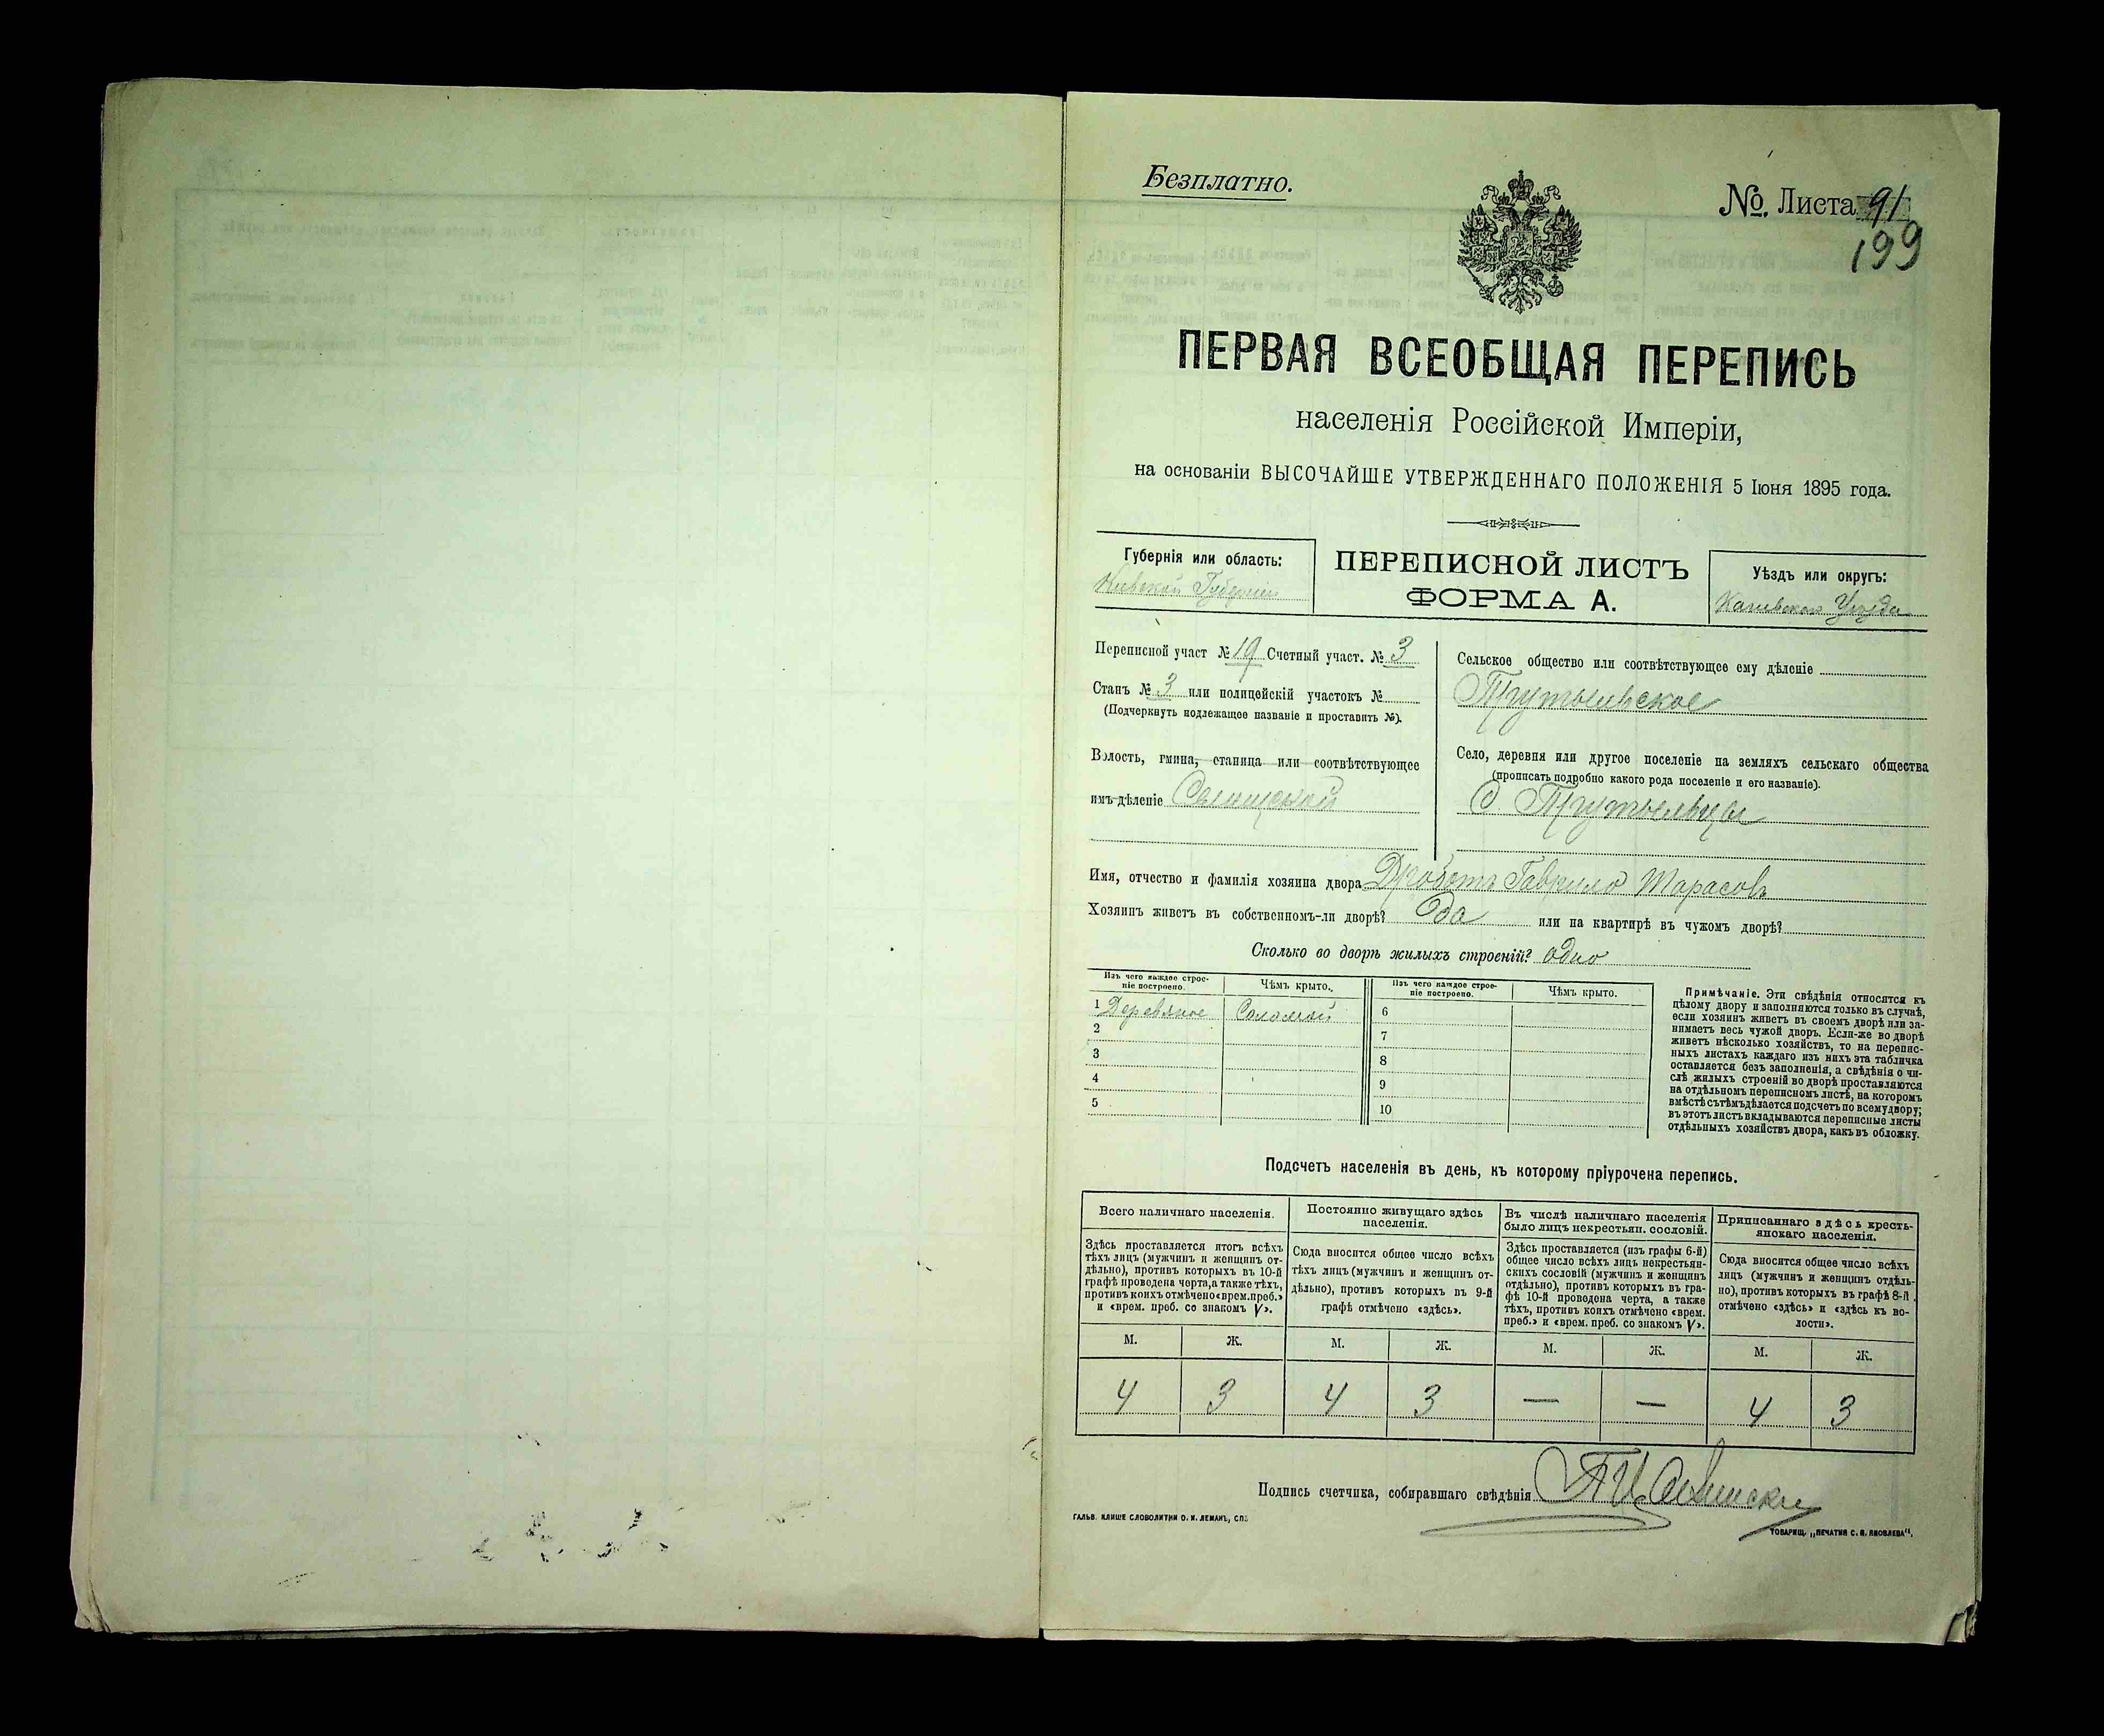 Безплатно.
№. Листа 91
199
ПЕРВАЯ ВСЕОБЩАЯ ПЕРЕПИСЬ
населенія Россійской Имперіи,
на основаніи ВЫСОЧАЙШЕ УТВЕРЖДЕННАГО ПОЛОЖЕНІЯ 5 Іюня 1895 года.
Губернія или область:
Кіевской Губерніи
ПЕРЕПИСНОЙ ЛИСТЪ
ФОРМА А.
Уѣздъ или округъ:
Каневскаго Уѣзда
Переписной участ № 19 Счетный участ. № 3
Станъ № 3 или полицейскій участокъ №
(Подчеркнуть подлежащее названіе и проставить №).
Волость, гмина, станица или соотвѣтствующее
имъ дѣленіе
Сельское общество или соотвѣтствующее ему дѣленіе
Прутыльское
Село, деревня или другое поселеніе на земляхъ сельскаго общества
(прописать подробно какого рода поселеніе и его названіе).
Прутыльцы
Имя, отчество и фамилія хозяина двора Гаврило Тарасовъ
Хозяинъ живетъ въ собственномъ-ли дворѣ? Да или на квартирѣ въ чужомъ дворѣ?
Сколько во дворѣ жилыхъ строеній? одно
Изъ чего каждое строе-
ніе построено.
Чѣмъ крыто.
Изъ чего каждое строе-
ніе построено.
Чѣмъ крыто.
1 Деревяное Соломой 6
2 7
3 8
4 9
5 10
Примѣчаніе. Эти свѣдѣнія относятся къ
цѣлому двору и заполняются только въ случаѣ,
если хозяинъ живетъ въ своемъ дворѣ или за-
нимаетъ весь чужой дворъ. Если-же во дворѣ
живетъ нѣсколько хозяйствъ, то на перепис-
ныхъ листахъ каждаго изъ нихъ эта табличка
оставляется безъ заполненія, а свѣдѣнія о чи-
слѣ жилыхъ строеній во дворѣ проставляются
на отдѣльномъ переписномъ листѣ, на которомъ
вмѣстѣ съ тѣмъ дѣлается подсчетъ по всему двору;
въ этотъ листъ вкладываются переписные листы
отдѣльныхъ хозяйствъ двора, какъ въ обложку.
Подсчетъ населенія въ день, къ которому пріурочена перепись.
Всего наличнаго населенія.
Здѣсь проставляется итогъ всѣхъ
тѣхъ лицъ (мужчинъ и женщинъ от-
дѣльно), противъ которыхъ въ 10-й
графѣ проведена черта, а также тѣхъ,
противъ коихъ отмѣчено «врем. преб.»
и «врем. преб. со знакомъ V».
Постоянно живущаго здѣсь
населенія.
Сюда вносится общее число всѣхъ
тѣхъ лицъ (мужчинъ и женщинъ от-
дѣльно), противъ которыхъ въ 9-й
графѣ отмѣчено «здѣсь».
Въ числѣ наличнаго населенія
было лицъ некрестьян. сословій.
Здѣсь проставляется (изъ графы 6-й)
общее число всѣхъ лицъ некрестьян-
скихъ сословій (мужчинъ и женщинъ
отдѣльно), противъ которыхъ въ гра-
фѣ 10-й проведена черта, а также
тѣхъ, противъ коихъ отмѣчено «врем.
преб.» и «врем. преб. со знакомъ V».
Приписаннаго здѣсь кресть-
янскаго населенія.
Сюда вносится общее число всѣхъ
лицъ (мужчинъ и женщинъ отдѣль-
но), противъ которыхъ въ графѣ 8-й
отмѣчено «здѣсь» и «здѣсь къ во-
лости».
М. Ж. М. Ж. М. Ж. М. Ж.
4 3 4 3 — — 4 3
Подпись счетчика, собиравшаго свѣдѣнія
ГАЛЬВ. КЛИШЕ СЛОВОЛИТНИ О. И. ЛЕМАНЪ, СПБ
ТОВАРИЩ. „ПЕЧАТНЯ С. П. ЯКОВЛЕВА“.